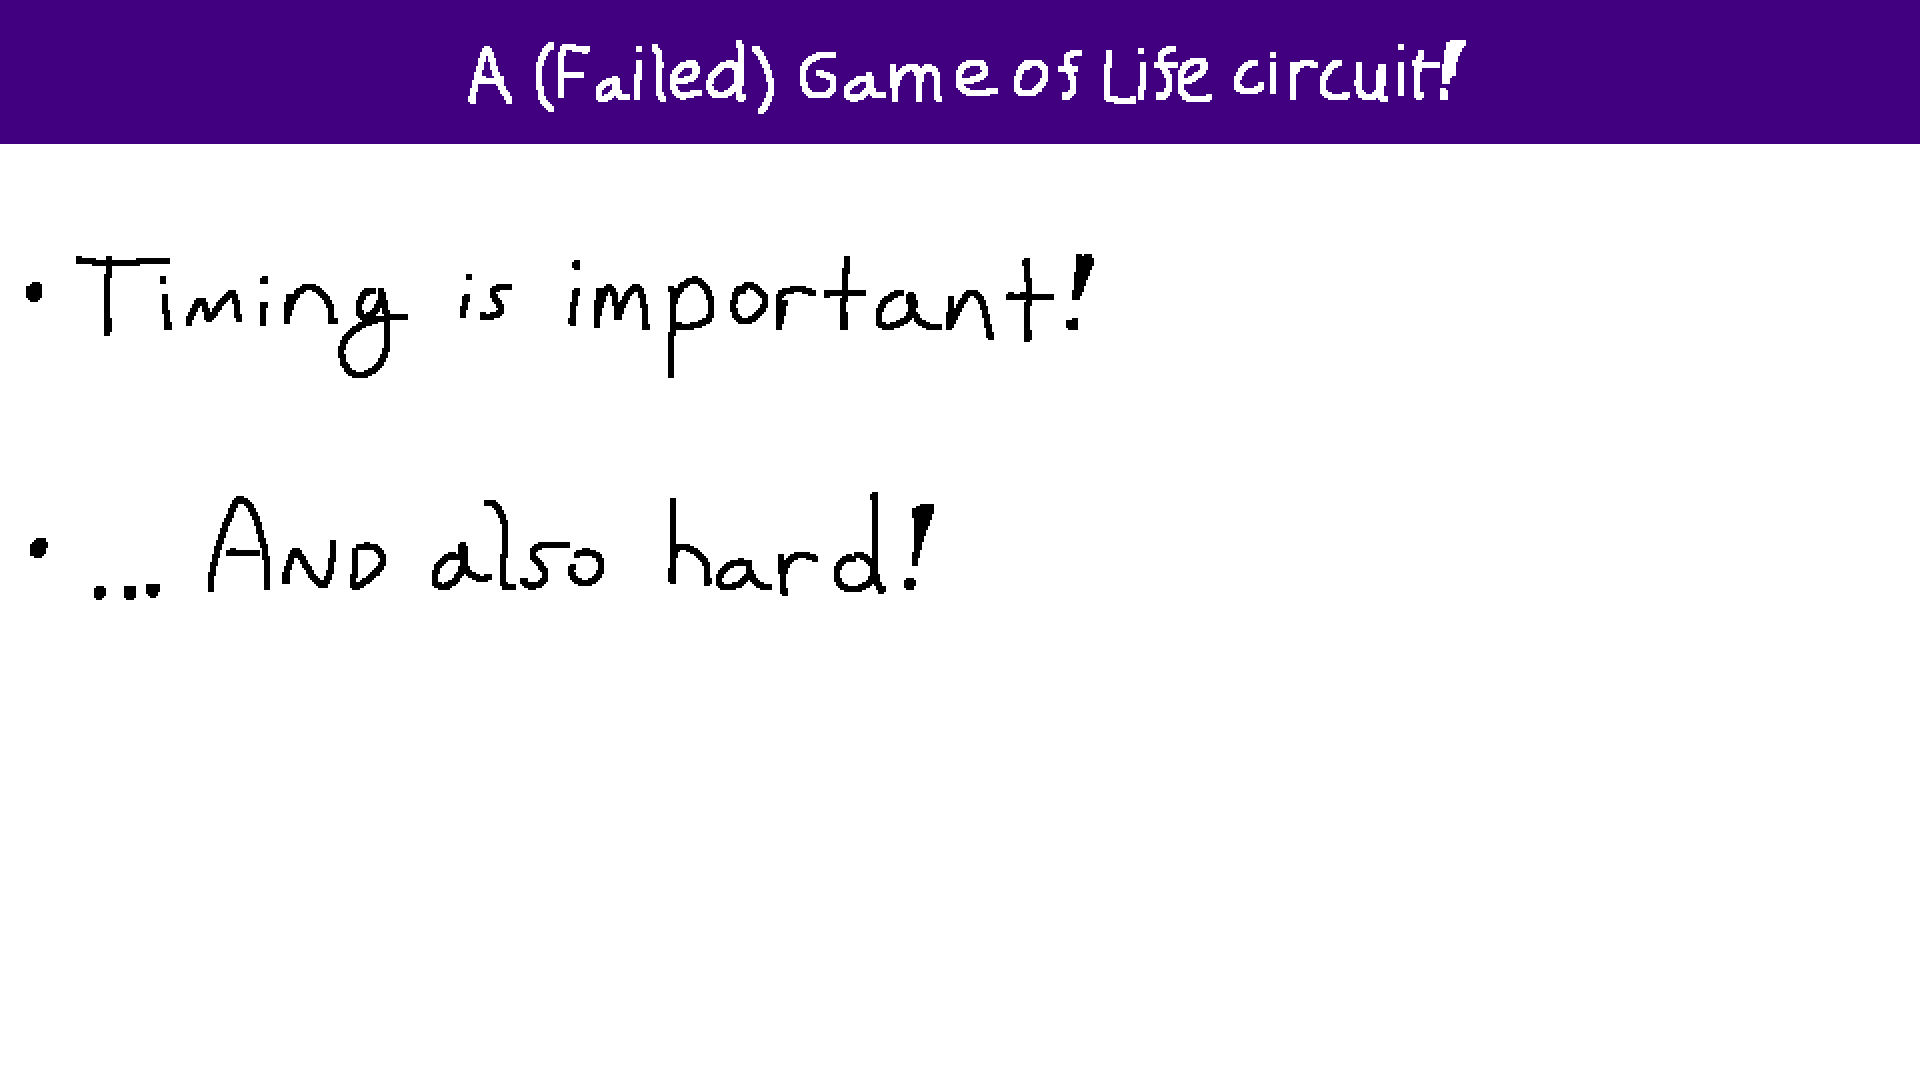 A (Failed) Game of Life circuit!
• Timing is important!
• ... AND also hard!